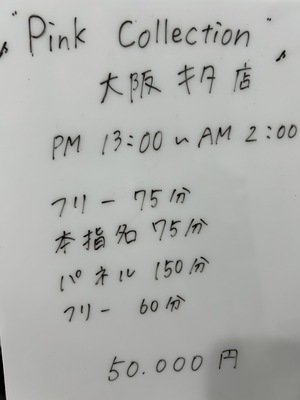 "Pink Collection"
大阪キタ店
PM 13:00 ~ AM 2:00
フリー 75分
本指名 75分
パネル 150分
フリー 60分
50.000円